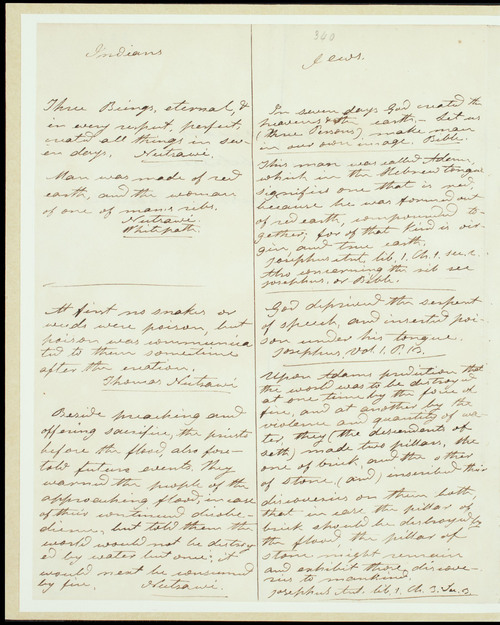 340
Indians
Three Beings, eternal, &
in every respect, perfect,
created all things in sev-
en days. Nutsawi.
Man was made of red
earth, and the woman
of one of mans ribs.
Nutsawi.
Whitepath.
At first no snakes or
weeds were poison, but
poison was communica
ted to them sometime
after the creation.
Thomas Nutsawi
Beside preaching and
offering sacrifice, the priests
before the flood, also fore-
told future events. They
warned the people of the
approaching flood, in case
of their continued disobe-
dience, but told them the
world would not be destroy
ed by water but once; it
would next be consumed
by fire. Nutsawi.
Jews.
In seven days God created the
heavens & the earth, — Let us
(three Persons), make man
in our own image. Bible.
This man was called Adam,
which in the Hebrew tongue
signifies one that is red,
because he was formed out
of red earth, compounded to-
gether; for of that kind is vir-
gin and true earth.
Josephus Ant. lib. 1. Ch. 1. sec. 2.
Also concerning the rib see
Josephus, or Bible.
God deprived the serpent
of speech, and inserted poi-
son under his tongue.
Josephus, Vol. 1. P.
Upon Adams prediction that
the world was to be destroyed
at one time by the force of
fire, and at another by the
violence and quantity of wa-
ter, they (the descendents of
Seth) made two pillars, the
one of brick, and the other
of stone, (and) inscribed their
discoveries on them both,
that in case the pillar of
brick should be destroyed by
the flood the pillar of
stone might remain
and exhibit those discove-
ries to mankind.
Josephus Ant. lib. 1. Ch. 2. Sec. 3